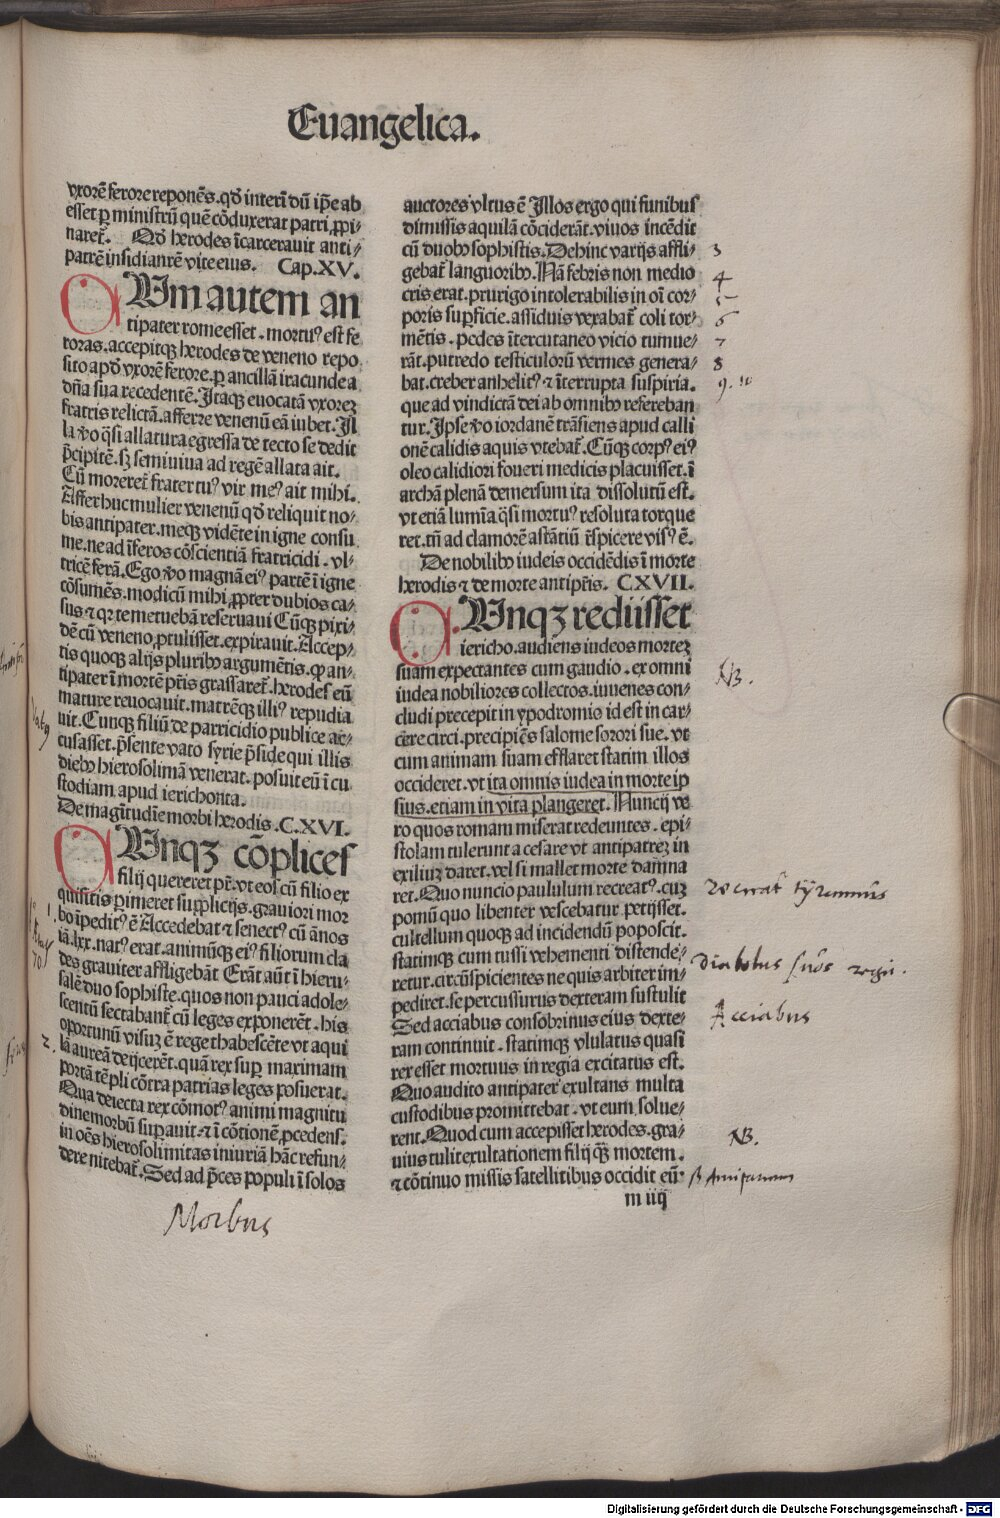 Euangelica.
vxorē ferore reponēs. qđ interī dū ip̄e ab
esset ꝑ ministrū quē cōduxerat patri ꝓpi⸗
naret̄. Qđ herodes īcarcerauit anti⸗
patrē insidiantē vite eius. Cap. XV.
CVm autem an
tipater rome esset. mortuꝰ est fe
roras. accepitqꝫ herodes de veneno repo
sito apđ vxorē ferore. ꝑ ancillā iracunde a
dn̄a sua recedentē. Itaqꝫ euocatā vxorez
fratris relictā. afferre venenū eā iubet. Il
la ṽo q̄si allatura egressa de tecto se dedit
p̄cipitē. sꝫ semiuiua ad regē allata ait.
Cū moreret̄ frater tuꝰ vir meꝰ ait mihi.
Affer huc mulier venenū qđ reliquit no⸗
bis antipater. meqꝫ vidēte in igne consu
me. ne ad īferos cōscientiā fratricidi. vl⸗
tricē ferā. Ego ṽo magnā eiꝰ partē ī igne
cōsumēs. modicū mihi ꝓpter dubios ca⸗
sus ⁊ qꝛ te metuebā reseruaui Cūqꝫ pixi⸗
dē cū veneno ꝓtulisset. expirauit. Accep⸗
tis quoqꝫ alijs pluribꝰ argumētis. ꝙ an⸗
tipater ī mortē pr̄is grassaret̄. herodes eū
mature reuocauit. matrēqꝫ illiꝰ repudia
uit. Cunqꝫ filiū de parricidio publice ac⸗
cusasset. p̄sente varo syrie p̄side qui illis
diebꝰ hierosolimā venerat. posuit eū ī cu
stodiam apud ierichonta.
De magītudīe morbi herodis. C. XVI.
CVnqꝫ cōplices
filij quereret pr̄. vt eos cū filio ex
quisitis ꝑimeret supplicijs. grauiori mor
bo īpeditꝰ ē Accedebat ⁊ senectꝰ cū ānos
iā. lxx. natꝰ erat. animūqꝫ eiꝰ filiorum cla
des grauiter affligebāt Erāt aūt ī hieru⸗
salē duo sophiste. quos non pauci adole⸗
scentū sectabant̄ cū leges exponerēt. his
oportunū visuꝫ ē rege thabescēte vt aqui
lā aureā deijcerēt. quā rex suꝑ maximam
portā tēpli cōtra patrias leges posuerat.
Qua deiecta rex cōmotꝰ animi magnitu
dine morbū suꝑauit. ⁊ ī cōtionē ꝓcedens.
in oēs hierosolimitas iniuriā hāc refun⸗
dere nitebat̄. Sed ad p̄ces populi ī solos
auctores vltus ē Illos ergo qui funibus
dimissis aquilā cōciderāt. viuos incēdit
cū duobꝰ sophistis. Dehinc varijs affli⸗ 3
gebat̄ languoribꝰ. Nā febris non medio 4
cris erat. prurigo intolerabilis in oī cor⸗ 5
poris suꝑficie. assiduis vexabat̄ coli tor⸗ 6
mētis. pedes ītercutaneo vicio tumue⸗ 7
rāt. putredo testiculorū vermes genera⸗ 8
bat. creber anhelitꝰ ⁊ īterrupta suspiria. 9. 10
que ad vindictā dei ab omnibꝰ refereban
tur. Ipse ṽo iordanē trāsiens apud calli
onē calidis aquis vtebat̄. Cūqꝫ corpꝰ eiꝰ
oleo calidiori foueri medicis placuisset. ī
archā plenā demersum ita dissolutū est.
vt etiā lumīa q̄si mortuꝰ resoluta torque
ret. tn̄ ad clamorē astātiū r̄spicere visꝰ ē.
De nobilibꝰ iudeis occidēdis ī morte
herodis ⁊ de morte antipr̄is. CXVII.
CVnqꝫ redijsset
iericho. audiens iudeos mortez
suam expectantes cum gaudio. ex omni
iudea nobiliores collectos. iuuenes con⸗ NB.
cludi precepit in ypodromio id est in car⸗
cere circi. precipiēs salome sorori sue. vt
cum animam suam efflaret statim illos
occideret. vt ita omnis iudea in morte ip
sius. etiam in vita plangeret. Nuncij ve
ro quos romam miserat redeuntes. epi⸗
stolam tulerunt a cesare vt antipatrez in
exiliuꝫ daret. vel si mallet morte damna
ret. Quo nuncio paululum recreatꝰ. cuꝫ
pomū quo libenter vescebatur petijsset.
cultellum quoqꝫ ad incidendū poposcit.
statimqꝫ cum tussi vehementi distende⸗
retur. circūspicientes ne quis arbiter im⸗
pediret. se percussurus dexteram sustulit
Sed acciabus consobrinus eius dexte⸗ Acciabus
ram continuit. statimqꝫ vlulatus quasi
rex esset mortuus in regia excitatus est.
Quo audito antipater exultans multa
custodibus promittebat. vt eum solue⸗
rent. Quod cum accepisset herodes. gra⸗ NB.
uius tulit exultationem filij qꝫ mortem.
⁊ cōtinuo missis satellitibus occidit eū.
m iiij
Morbus
Digitalisierung gefördert durch die Deutsche Forschungsgemeinschaft - DFG